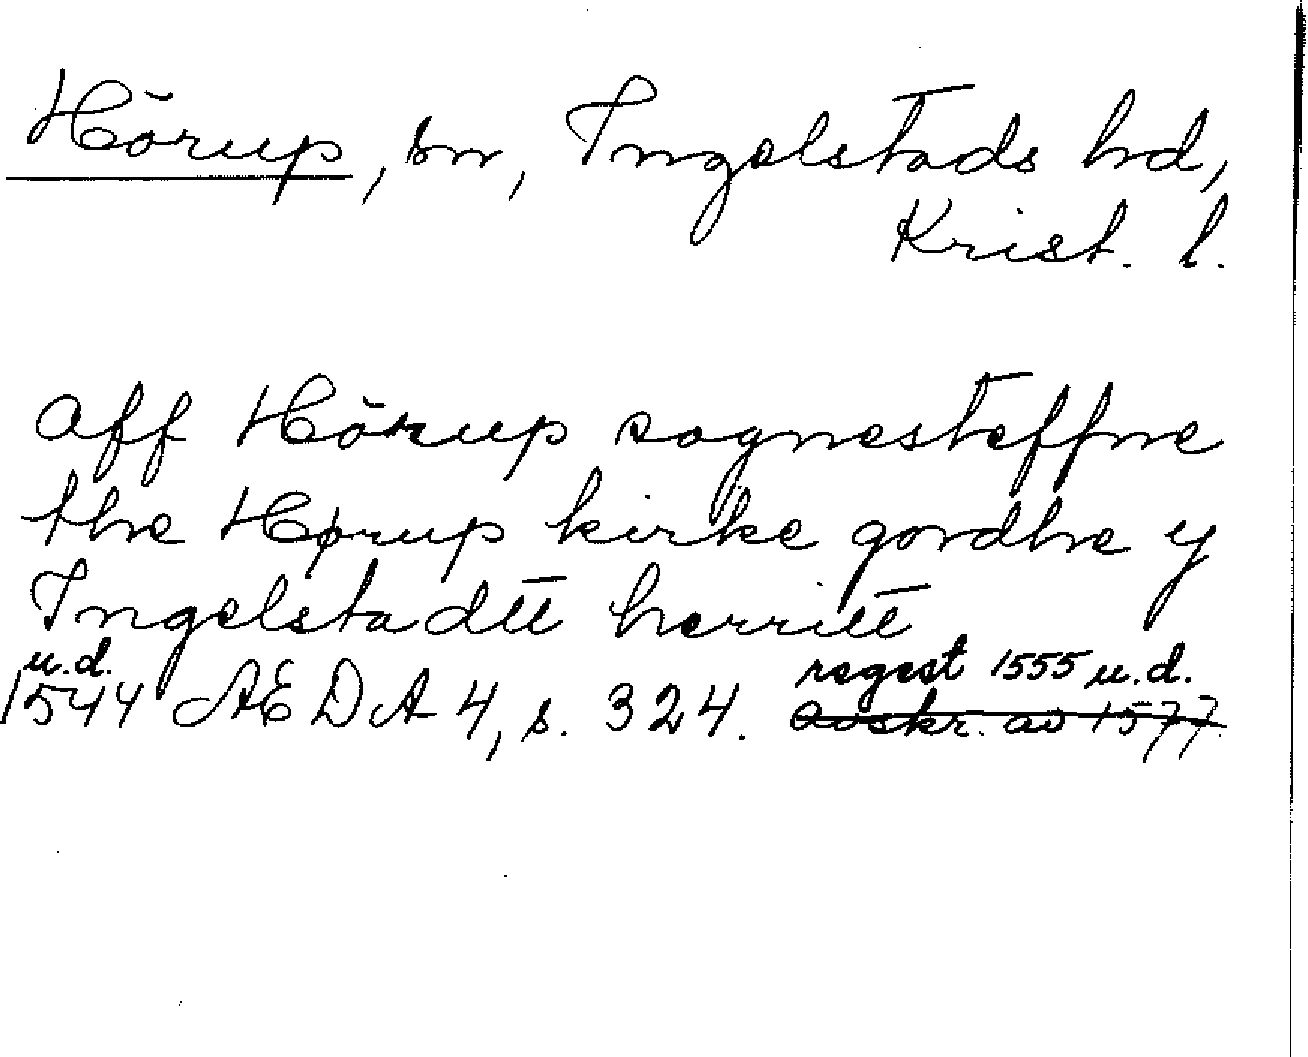 Hörup, sn, Ingelstads hd,
Krist. l.
aff Hörup sognesteffne
the Hørup kirke gordhe y
Ingelstadtt herritt
u.d. regest 1555 u.d.
1544 AEDA 4, s. 324. avskr. av 1577.